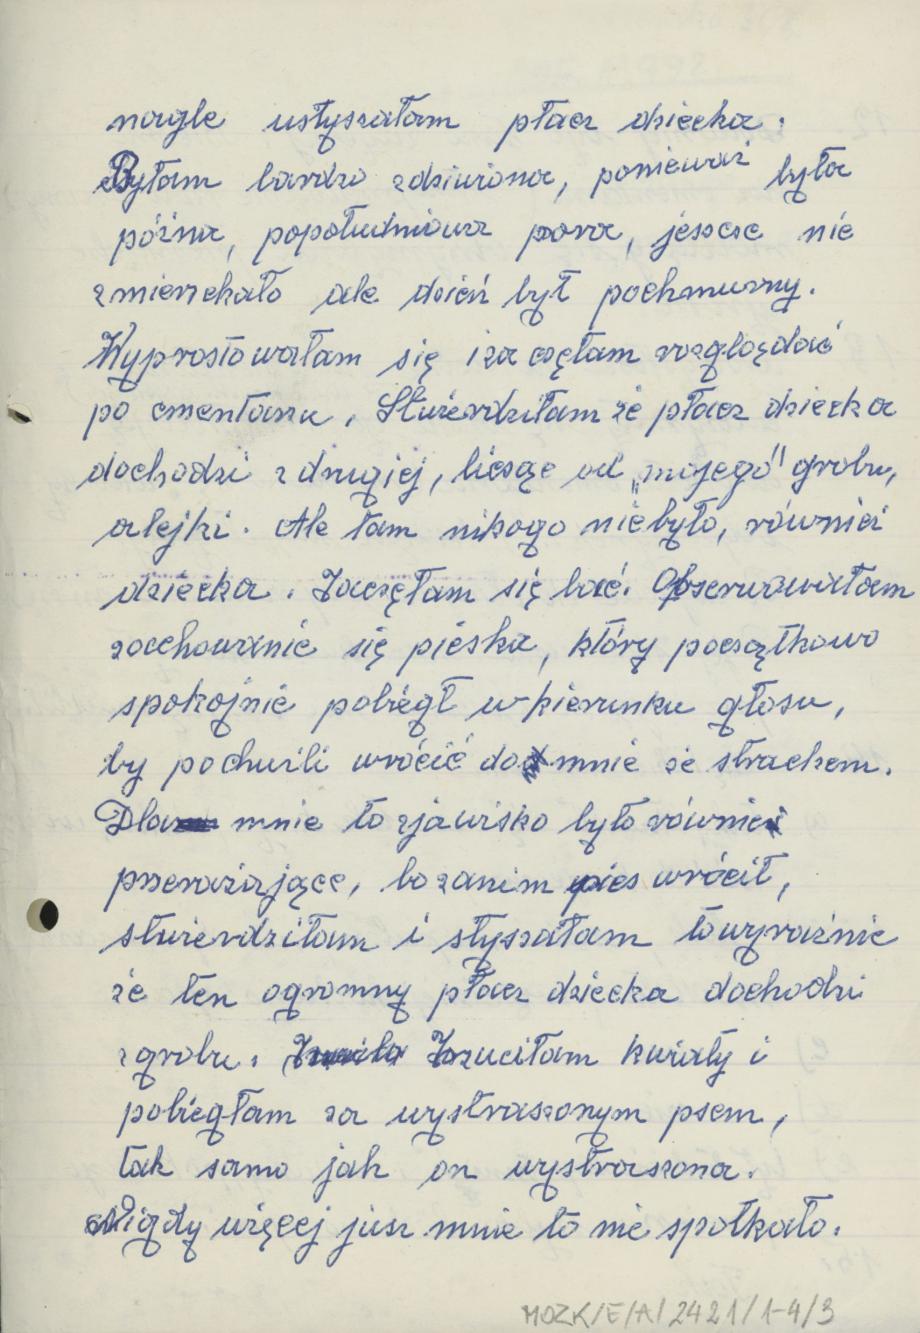 nagle usłyszałam płacz dziecka.
Byłam bardzo zdziwiona, ponieważ była
późna, popołudniowa pora, jeszcze nie
zmierzchało ale dzień był pochmurny.
Wyprostowałam się i zaczęłam rozglądać
po cmentarzu. Stwierdziłam że płacz dziecka
dochodzi z drugiej, licząc od "mojego" grobu,
alejki. Ale tam nikogo nie było, również
dziecka. Zaczęłam się bać. Obserwowałam
zachowanie się pieska, który początkowo
spokojnie pobiegł w kierunku głosu,
by po chwili wrócić do mnie ze strachem.
Dla mnie to zjawisko było również
przerażające, bo zanim pies wrócił,
stwierdziłam i słyszałam to wyraźnie
że ten ogromny płacz dziecka dochodzi
z grobu. Rzuciłam kwiaty i
pobiegłam za wystraszonym psem,
tak samo jak on wystraszona.
Nigdy więcej jusz mnie to nie spotkało.
MOZK/E/A/2421/1-4/3